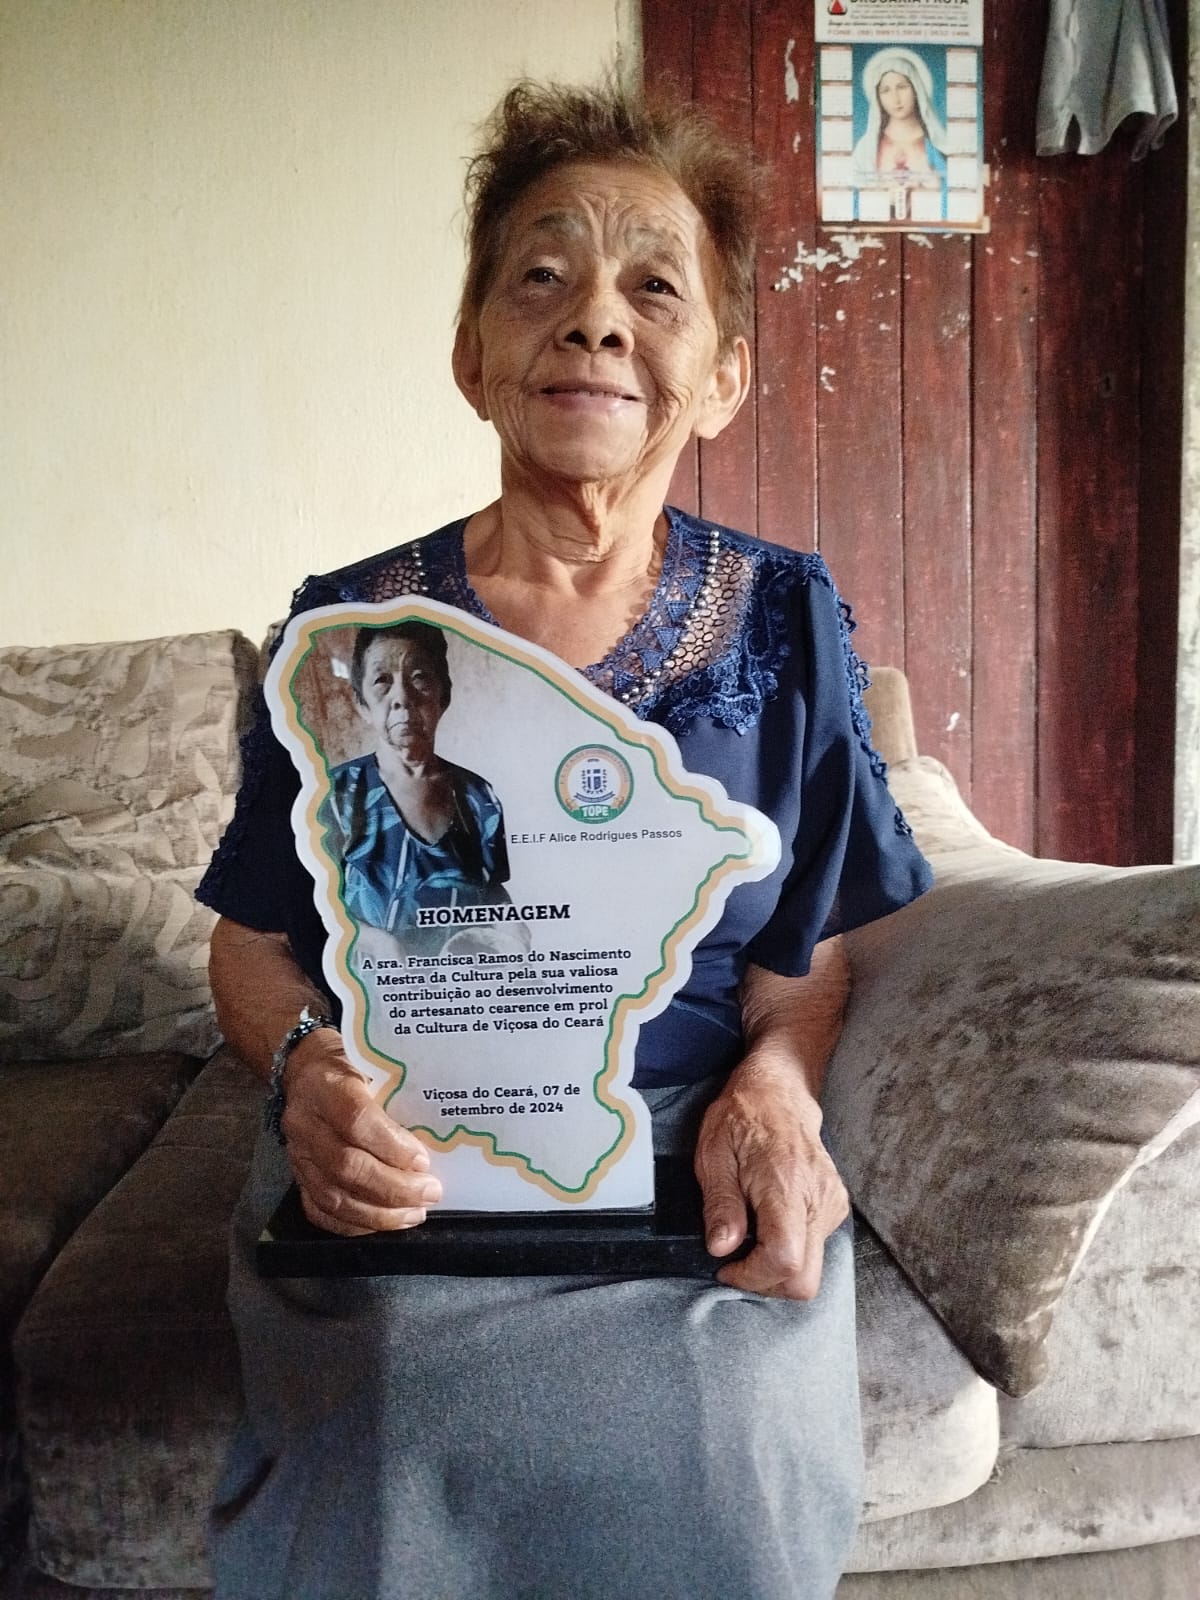 DROGARIA FROTA
TOPE
E.E.I.F Alice Rodrigues Passos
HOMENAGEM
A sra. Francisca Ramos do Nascimento
Mestra da Cultura pela sua valiosa
contribuição ao desenvolvimento
do artesanato cearence em prol
da Cultura de Viçosa do Ceará
Viçosa do Ceará, 07 de
setembro de 2024